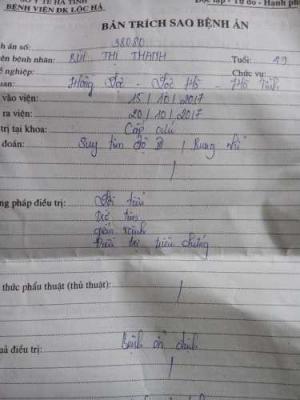 SỞ Y TẾ HÀ TĨNH
BỆNH VIỆN ĐK LỘC HÀ
Độc lập - Tự do - Hạnh phú
BẢN TRÍCH SAO BỆNH ÁN
h án số: 38080
ên bệnh nhân: BÙI THỊ THANH Tuổi: 49
ề nghiệp: Chức vụ:
uan: Hồng Lộc - Lộc Hà - Hà Tĩnh
vào viện: 15 / 10 / 2017
ra viện: 20 / 10 / 2017
trị tại khoa: Cấp cứu
đoán: Suy tim độ III / Rung nhĩ
ng pháp điều trị: Lợi tiểu
Trợ tim
giãn vành
Điều trị triệu chứng
thức phẩu thuật (thủ thuật):
uả điều trị: Bệnh ổn định